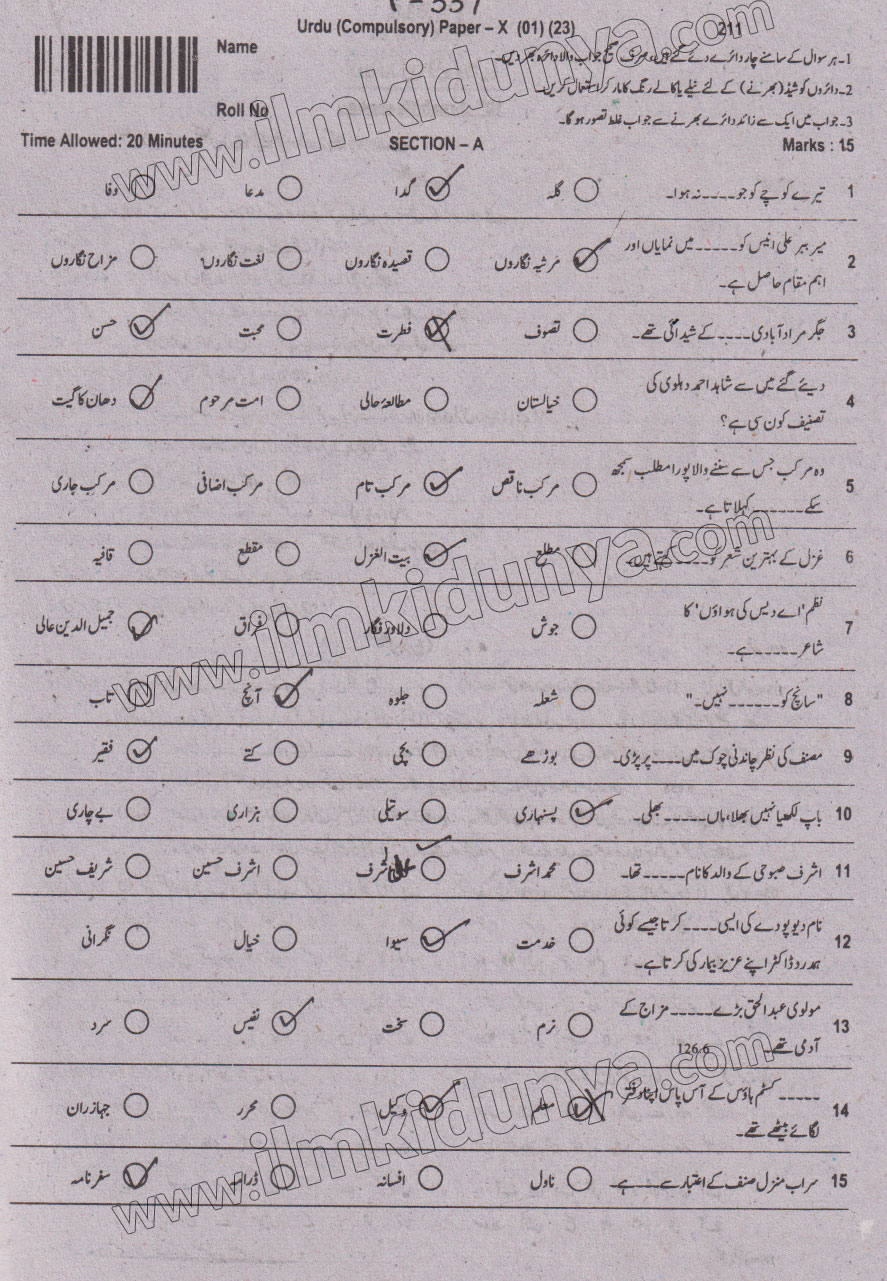 P-337
Urdu (Compulsory) Paper – X (01) (23)
211
Name
1۔ ہر سوال کے سامنے چار دائرے دیے گئے ہیں، صرف صحیح جواب والا دائرہ بھر دیں۔
2۔ دائروں کو شیڈ (بھرنے) کے لئے نیلے یا کالے رنگ کا مارکر استعمال کریں۔
Roll No
3۔ جواب میں ایک سے زائد دائرے بھرنے سے جواب غلط تصور ہو گا۔
Time Allowed: 20 Minutes SECTION – A Marks : 15
1 تیرے کوچے کو جو ---- نہ ہوا۔ گلہ گدا مدعا وفا
2 میر ببر علی انیس کو ----- میں نمایاں اور
اہم مقام حاصل ہے۔ مرثیہ نگاروں قصیدہ نگاروں لغت نگاروں مزاح نگاروں
3 جگر مراد آبادی ---- کے شیدائی تھے۔ تصوف فطرت محبت حسن
4 دیئے گئے میں سے شاہد احمد دہلوی کی
تصنیف کون سی ہے؟ خیالستان مطالعۂ حالی امت مرحوم دھان کا گیت
5 وہ مرکب جس سے سننے والا پورا مطلب سمجھ
سکے ------ کہلاتا ہے۔ مرکب ناقص مرکب تام مرکب اضافی مرکب جاری
6 غزل کے بہترین شعر کو ----- کہتے ہیں۔ مطلع بیت الغزل مقطع قافیہ
7 نظم 'اے دیس کی ہواؤں' کا
شاعر ----- ہے۔ جوش دلاور فگار فراق جمیل الدین عالی
8 "سانچ کو ------ نہیں۔" شعلہ جلوہ آنچ تاب
9 مصنف کی نظر چاندنی چوک میں ---- پر پڑی۔ بوڑھے بچی کتے فقیر
10 باپ لکھیا نہیں بھلا، ماں ------ بھلی۔ پسنہاری سوتیلی ہزاری بے چاری
11 اشرف صبوحی کے والد کا نام ----- تھا۔ محمد اشرف علی اشرف اشرف حسین شریف حسین
12 نام دیو پودے کی ایسی ---- کرتا جیسے کوئی
ہمدرد ڈاکٹر اپنے عزیز بیمار کی کرتا ہے۔ خدمت سیوا خیال نگرانی
13 مولوی عبدالحق بڑے ----- مزاج کے
آدمی تھے۔ 126.6 نرم سخت نفیس سرد
14 ----- کسٹم ہاؤس کے آس پاس اپنا دفتر
لگائے بیٹھے تھے۔ معلم وکیل محرر جہاز ران
15 سراب منزل صنف کے اعتبار سے ---- ہے۔ ناول افسانہ ڈراما سفر نامہ
www.ilmkidunya.com
www.ilmkidunya.com
www.ilmkidunya.com